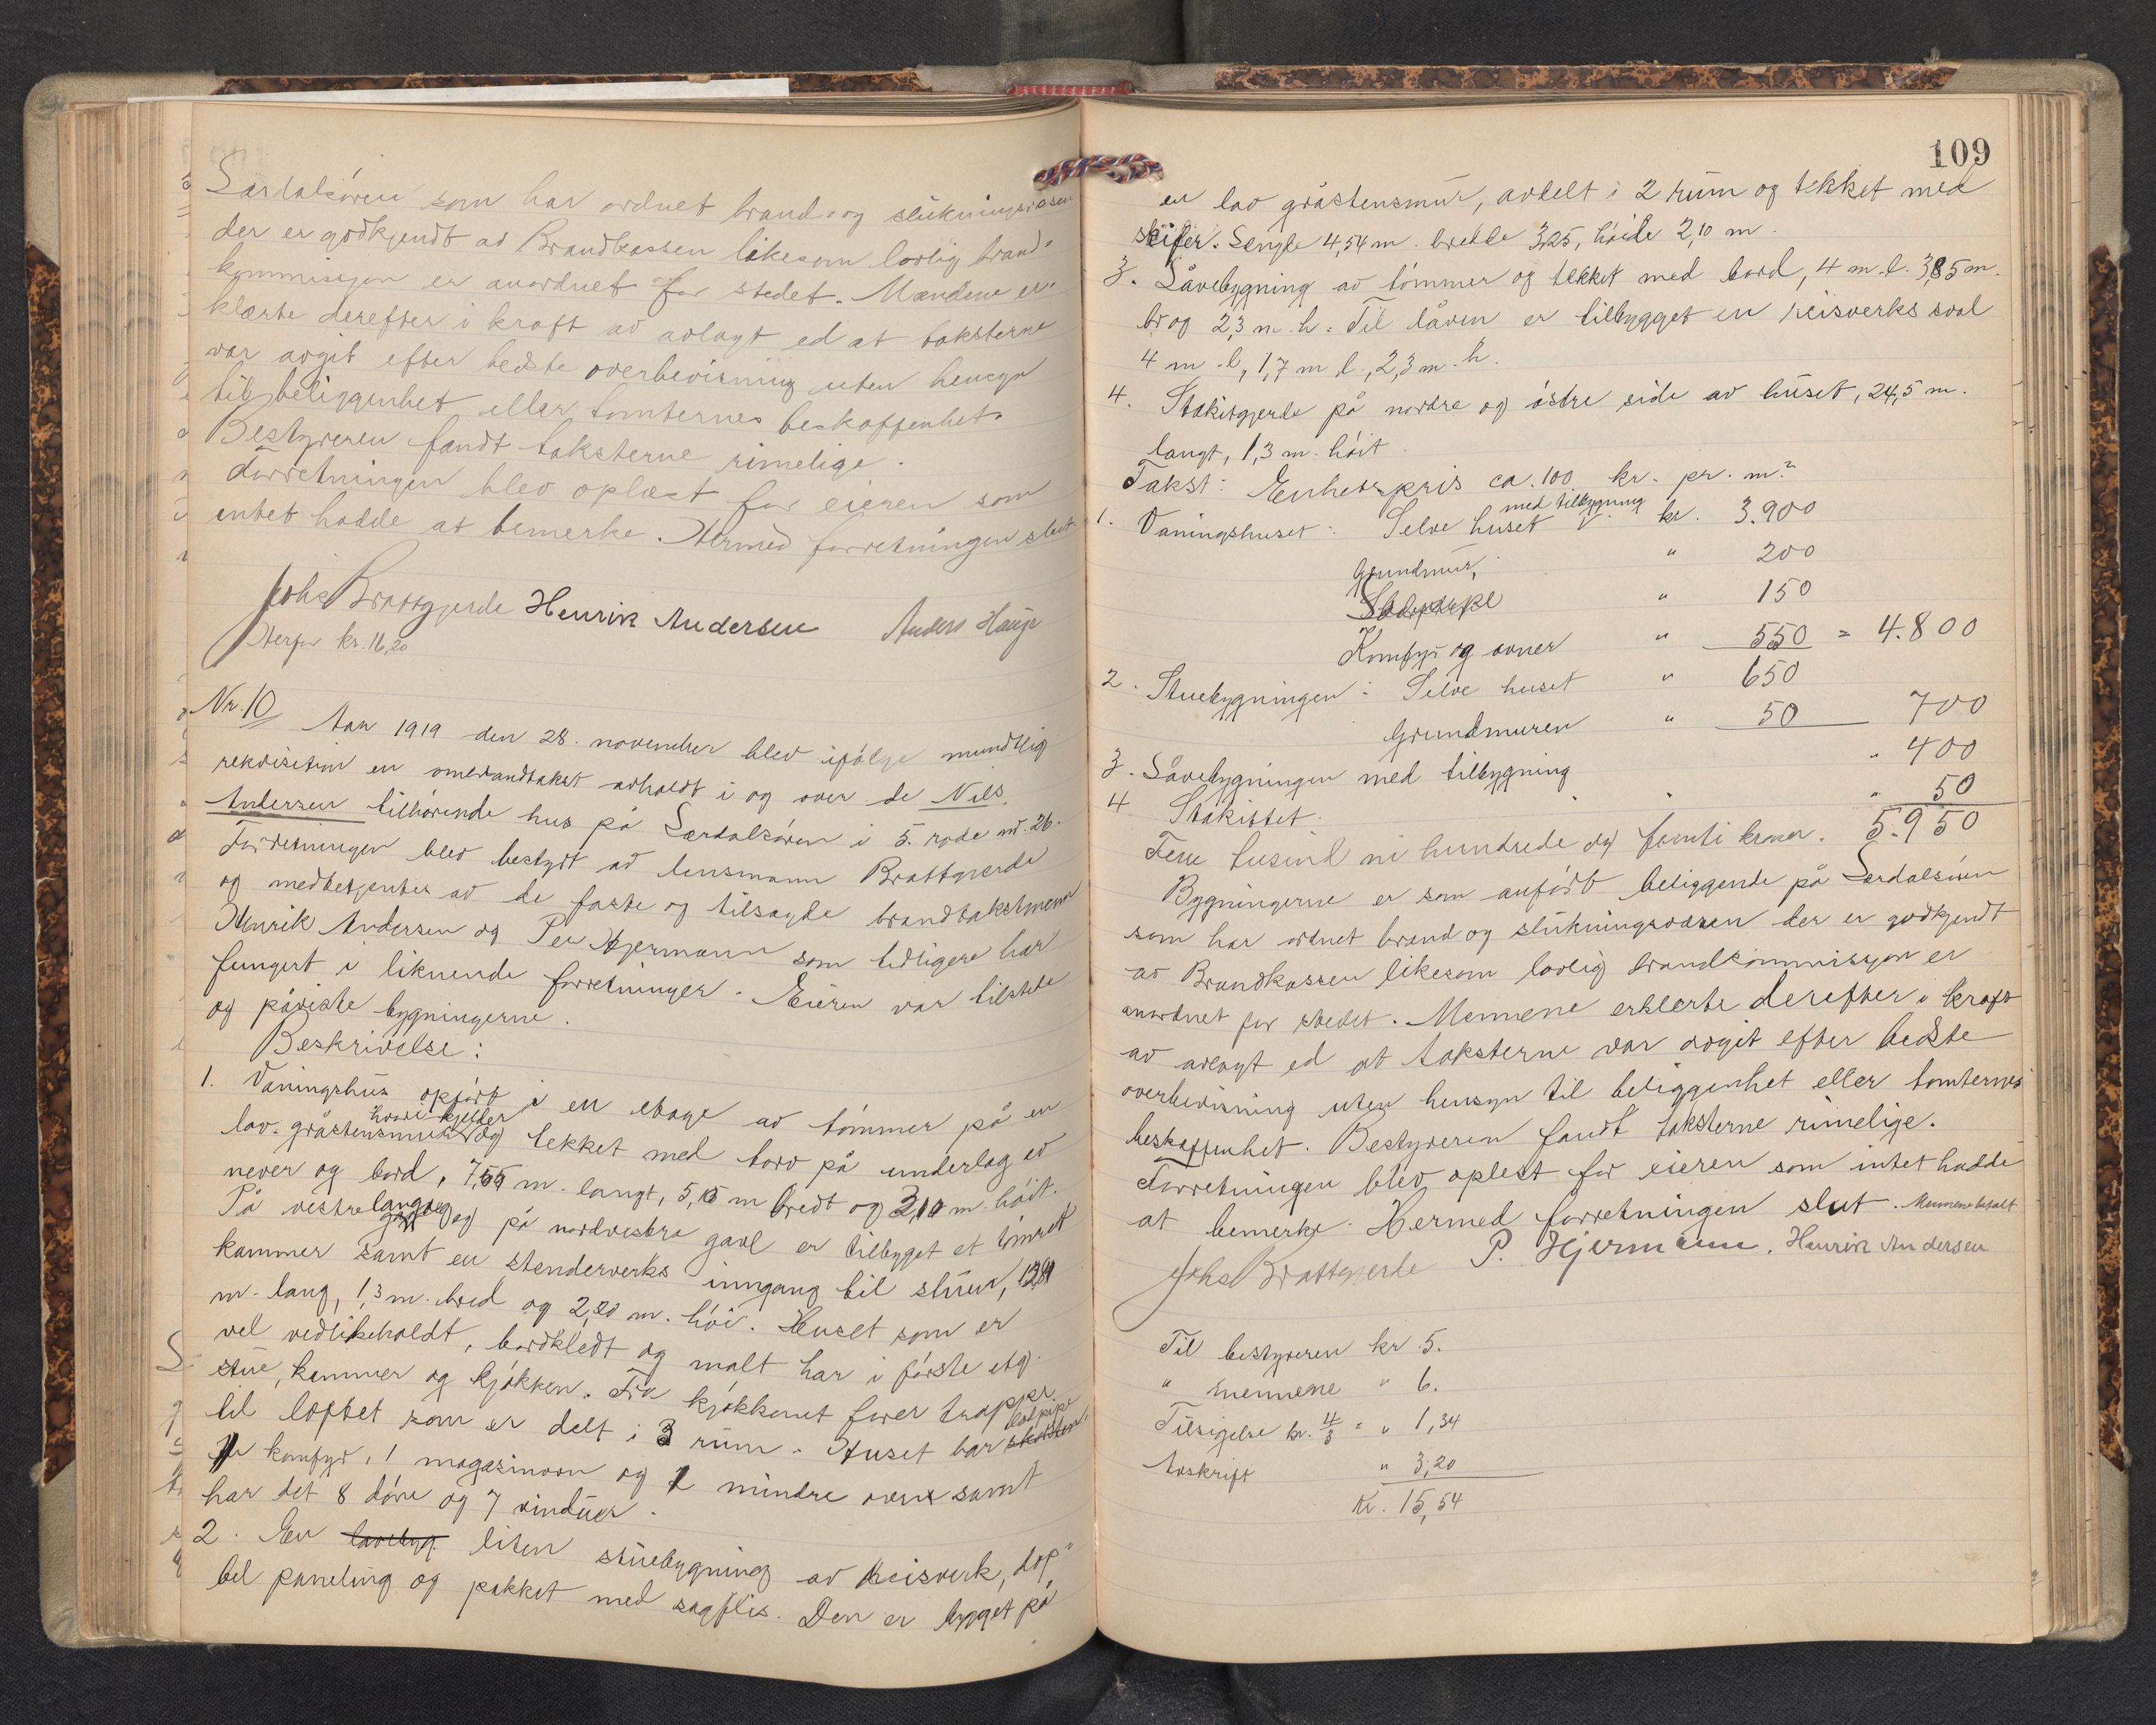 Lærdalsøren som har ordnet brand- og slukningsvæsen
der er godkjendt av Brandkassen likesom lovlig brand-
kommisjon er anordnet for stedet. Mændene er-
klærte derefter i kraft av avlagt ed at taksterne
var avgit efter bedste overbevisning uten hensyn
til beliggenhet eller tomternes beskaffenhet.
Bestyreren fandt taksterne rimelige.
Forretningen blev oplæst for eieren som
intet hadde at bemerke. Hermed forretningen slut.
Johs Brattgjerde Henrik Andersen Anders Hauge
Herfor kr. 16,20
Nr. 10
Aar 1919 den 28. november blev ifølge mundtlig
rekvisition en ombrandtakst avholdt i og over de Nils
Andersen tilhørende hus på Lærdalsøren i 5. rode nr. 26.
Forretningen blev bestyrt av lensmann Brattgjerde
og medbetjentes av de faste og tilsagde brandtakstmenn
Henrik Andersen og Per Hjermann som tidligere har
fungert i liknende forretninger. Eieren var tilstede
og påviste bygningerne.
Beskrivelse:
1. Våningshus opført i en etage av tømmer på en
hvori kjelder
lav gråstensmur og tekket med torv på underlag av
never og bord, 7,55 m. langt, 5,15 m bredt og 3,10 m. høit.
På vestre langveg og på nordvestre gavl er tilbyget et tømret
kammer samt en stenderverks inngang til stuen,
m. lang, 1,3 m. bred og 2,20 m. høi. Huset som er
vel vedlikeholdt, bordkledt og malt har i første etg.
stue, kammer og kjøkken. Fra kjøkkenet fører trapper
til loftet som er delt i 3 rum. Huset har skorsten,
1 komfyr, 1 magasinovn og 1 mindre ovner samt
har det 8 døre og 7 vinduer.
2. En lavebyg. liten stuebygning av reisverk, dop-
bel paneling og pakket med sagflis. Den er bygget på
109
en lav gråstensmur, avdelt i 2 rum og tekket med
skifer. Lengde 4,54 m. bredde 3,25, høide 2,10 m.
3. Låvebygning av tømmer og tekket med bord, 4 m. l. 3,85 m.
br og 2,3 m. h. Til låven er tilbygget en reisverks sval
4 m. l, 1,7 m b., 2,3 m. h.
4. Stakitgjerde på nordre og østre side av huset, 24,5 m.
langt, 1,3 m. høit.
Takst: Enhetspris ca. 100 kr. pr. m²
med tilbygning
1. Våningshuset: Selve huset kr. 3.900
Grundmur, " 200
" 150
Komfyr og ovner " 550 = 4.800
2. Stuebygningen: Selve huset " 650
Grundmuren " 50 700
3. Låvebygningen med tilbygning " 400
4 Stakittet. " 50
5.950
Fem tusind ni hundrede og femti kroner.
Bygningerne er som anført beliggende på Lærdalsøren
som har ordnet brand og slukningsvæsen der er godkjendt
av Brandkassen likesom lovlig brandkommisjon er
anordnet for stedet. Mennene erklerte derefter i kraft
av avlagt ed at taksterne var avgit efter bedste
overbevisning uten hensyn til beliggenhet eller tomternes
beskaffenhet. Bestyreren fandt taksterne rimelige.
Forretningen blev oplest for eieren som intet hadde
at bemerke. Hermed forretningen slut. Mennene betalt
Johs Brattgjerde P. Hjermann. Henrik Andersen
Til bestyreren kr 5.
" mennene " 6.
Tilsigelse kr. 4/3 = " 1,34
Avskrift " 3,20
Kr. 15,54